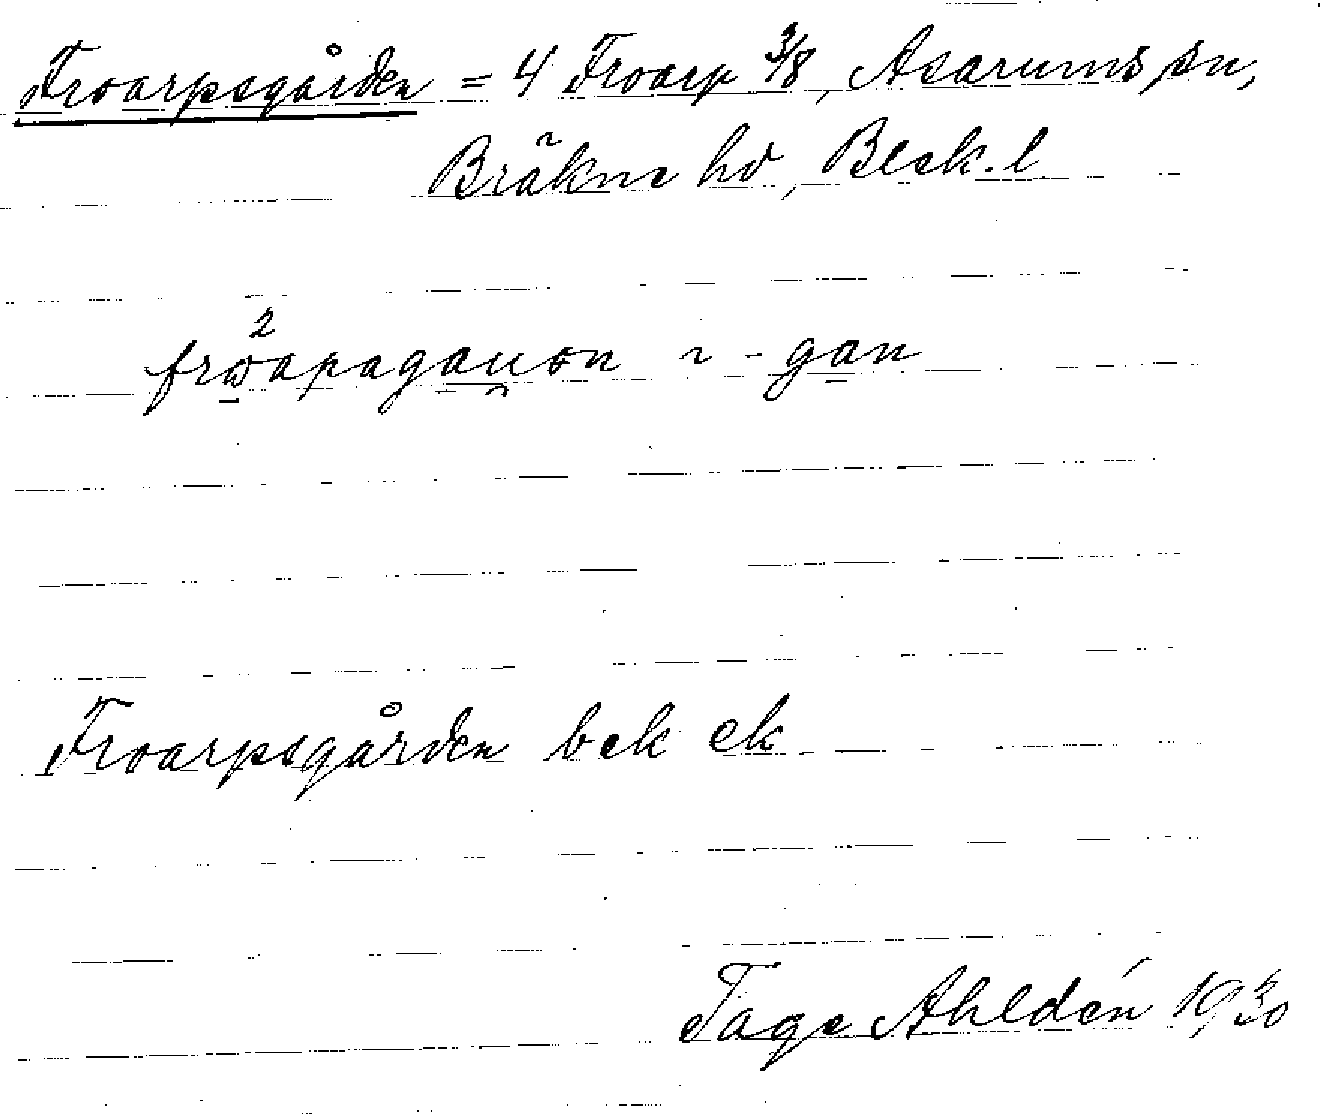 Froarpsgården = 4 Froarp 3/8, Asarums sn,
Bräkne hd, Blek. l
~ -gan
Froarpsgården bek ek
Tage Ahldén 1930